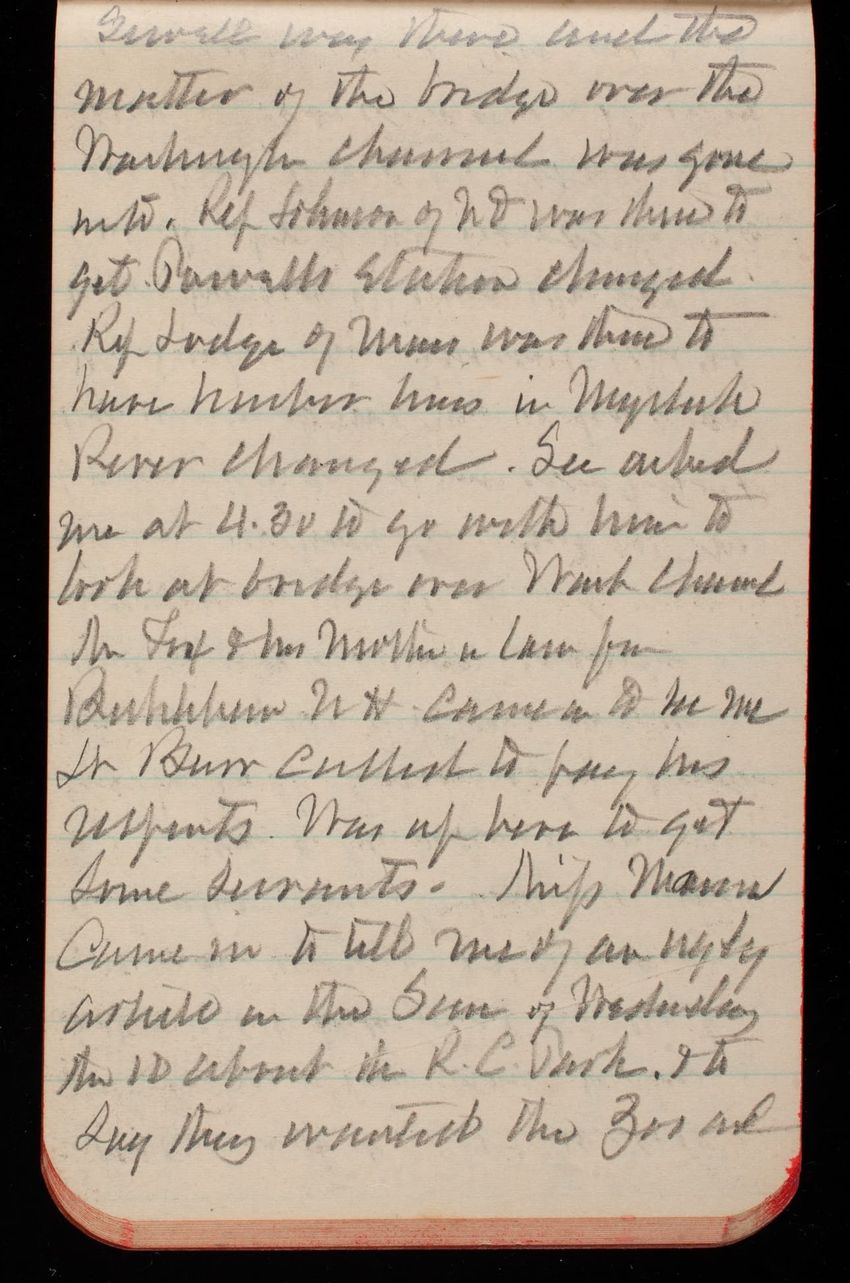 Sewall was there and the
matter of the bridge over the
Washington channel was gone
into. Rep Johnson of ND was there to
get Powells Station changed
Rep Lodge of Mass was there to
have harbor lines in Mystick
River changed. Sec asked
me at 4.30 to go with him to
look at bridge over Wash channel
Mr Fox & his Mother in law from
Bethlehem N H came in to see me
Lt Burr called to pay his
respects. Was up here to get
some servants - Miss Mann
Came in to tell me of an ugly
article in the Sun of Wednesday
the 10 about the R. C. Park. & to
say they wanted the Zoo